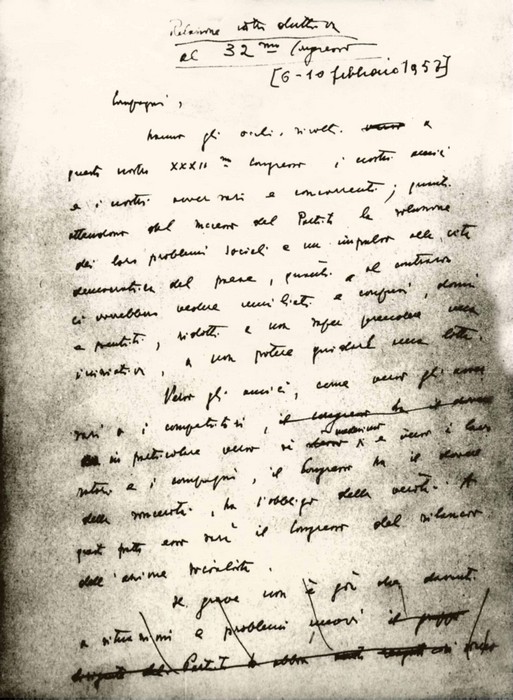 Relazione introduttiva
al 32mo Congresso
[6-10 febbraio 1957]
Compagni,
hanno gli occhi rivolti a
questo nostro XXXII° Congresso i nostri amici
e i nostri avversari e concorrenti; quanti
attendono dal successo del Partito la soluzione
dei loro problemi sociali e un impulso alla vita
democratica del paese, quanti al contrario
ci vorrebbero vedere umiliati e confusi, domi
e pentiti, ridotti a non saper prendere una
iniziativa, a non potere guidare una lotta.
Verso gli amici, come verso gli avver
sari e i competitori, il congresso ha il dovere
in particolare verso e verso i
e i compagni, il Congresso ha il dovere
della sincerità, ha l'obbligo della verità. A
questo patto esso sarà il Congresso del rilancio
dell'azione socialista.
Il grave non è già che davanti
a situazioni e problemi nuovi il gruppo
del Partito abbia